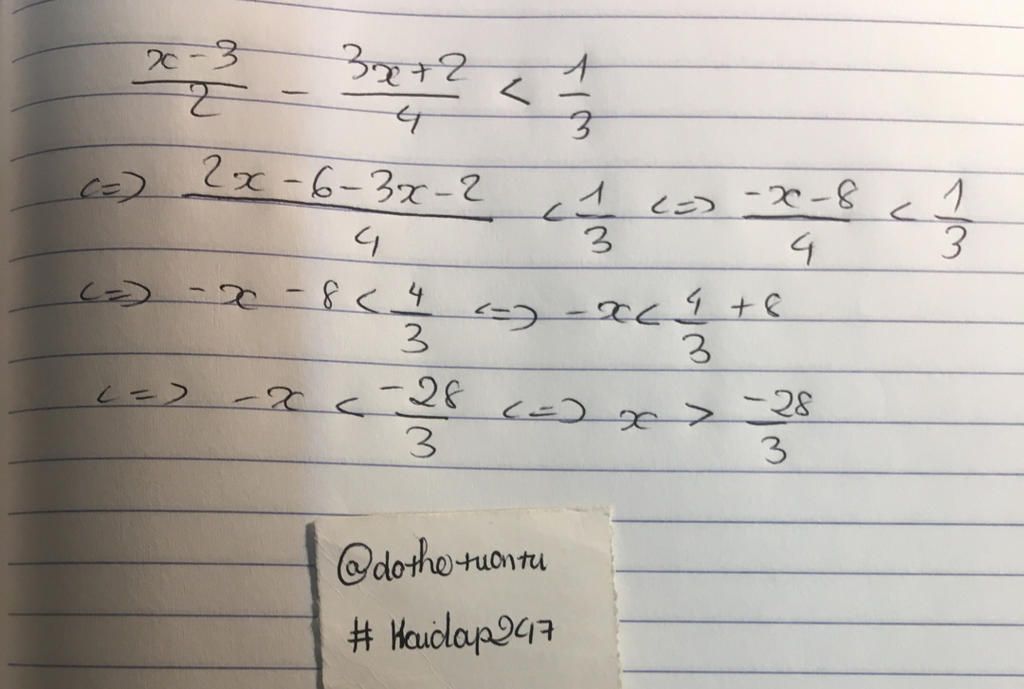 x-3/2 - 3x+2/4 < 1/3
<=> 2x-6-3x-2/4 < 1/3 <=> -x-8/4 < 1/3
<=> -x-8 < 4/3 <=> -x < 4/3 + 8
<=> -x < -28/3 <=> x > -28/3
@dothetuantu
# Hoidap247